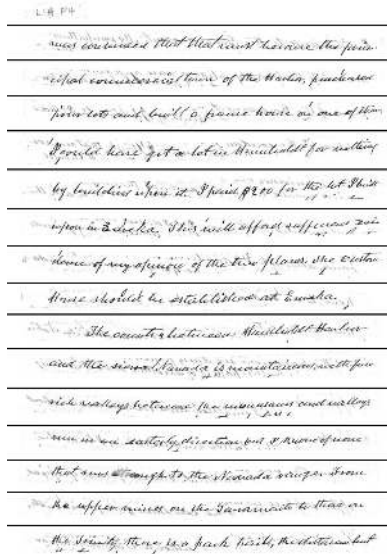 L: A P4
was convinced that that must become the prin-
cipal commercial town of the Harbor, purchased
four lots and built a frame house on one of them
I could have got a lot in Humboldt for nothing
by building upon it. I paid $200 for the lot I built
upon in Eureka. This will afford sufficient evi-
dence of my opinion of the two places. The Custom
House should be established at Eureka.
The country between Humboldt Harbor
and the sierra Nevada is mountainous, with fine
rich valleys between the mountains and valleys
run in an easterly direction but I know of none
that runs through to the Nevada range. From
the upper mines on the Sacramento to those on
the Trinity there is a pack trail, the distance but